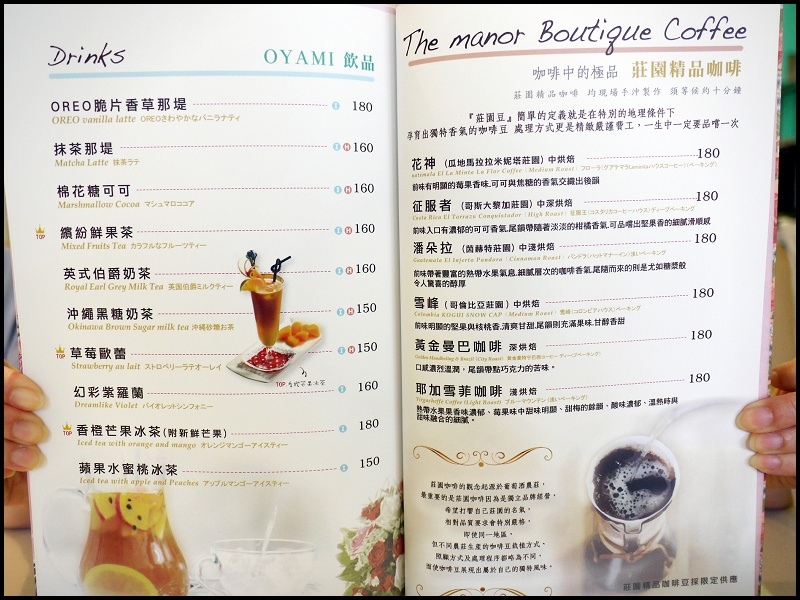 Drinks
OYAMI 飲品
OREO脆片香草那堤 I 180
OREO vanilla latte OREOさわやかなバニラナティ
抹茶那堤 I H 160
Matcha Latte 抹茶ラテ
棉花糖可可 I H 160
Marshmallow Cocoa マシュマロココア
TOP 繽紛鮮果茶 I H 160
Mixed Fruits Tea カラフルなフルーツティー
英式伯爵奶茶 I H 160
Royal Earl Grey Milk Tea 英国伯爵ミルクティー
沖繩黑糖奶茶 I H 150
Okinawa Brown Sugar milk tea 沖縄砂糖お茶
TOP 草莓歐蕾 I H 150
Strawberry au lait ストロベリーラテオーレイ
TOP 香橙芒果冰茶
幻彩紫羅蘭 I 160
Dreamlike Violet バイオレットシンフォニー
TOP 香橙芒果冰茶(附新鮮芒果) I 180
Iced tea with orange and mango オレンジマンゴーアイスティー
蘋果水蜜桃冰茶 I 150
Iced tea with apple and Peaches アップルマンゴーアイスティー
The manor Boutique Coffee
咖啡中的極品 莊園精品咖啡
莊園精品咖啡 均現場手沖製作 須等候約十分鐘
『莊園豆』簡單的定義就是在特別的地理條件下
孕育出獨特香氣的咖啡豆 處理方式更是精緻嚴謹費工，一生中一定要品嚐一次
花神 (瓜地馬拉拉米妮塔莊園) 中烘焙 180
Guatemala El La Minita La Flor Coffee (Medium Roast)
前味有明顯的莓果香味,可可與焦糖的香氣交織出後韻
征服者 (哥斯大黎加莊園) 中深烘焙 180
Costa Rica El Tarrazu Conquistador (High Roast)
前味入口有濃郁的可可香氣,尾韻帶隨著淡淡的柑橘香氣,可品嚐出堅果香的細膩滑順感
潘朵拉 (茵赫特莊園) 中淺烘焙 180
Guatemala El Injerto Pandora (Cinnamon Roast)
前味帶著豐富的熱帶水果氣息,細膩層次的咖啡香氣,尾隨而來的則是尤如糖漿般
令人驚喜的醇厚
雪峰 (哥倫比亞莊園) 中烘焙 180
Colombia KOGUI SNOW CAP (Medium Roast)
前味明顯的堅果與核桃香,清爽甘甜,尾韻則充滿果味,甘醇香甜
黃金曼巴咖啡 深烘焙 180
Golden Mandheling & Brazil (City Roast)
口感濃烈溫潤、尾韻帶點巧克力的苦味。
耶加雪菲咖啡 淺烘焙 180
Yirgacheffe Coffee (Light Roast)
熱帶水果果香味濃郁、莓果味中甜味明顯、甜梅的餘韻、酸味濃郁、溫熱時與
甜味融合的細膩。
莊園咖啡的觀念起源於葡萄酒農莊,
最重要的是莊園咖啡因為是獨立品牌經營,
希望打響自己莊園的名氣,
相對品質要求會特別嚴格,
即使同一地區,
但不同農莊生產的咖啡豆栽植方式,
照顧方式及處理程序都略為不同,
而使咖啡豆展現出屬於自己的獨特風味。
莊園精品咖啡豆採限定供應